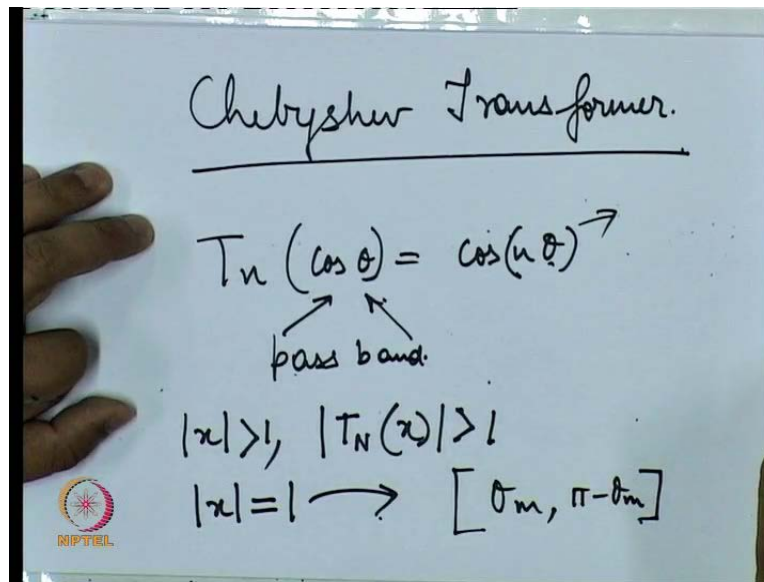 Chebyshev Transformer.
Tn (cos θ) = cos(n θ) →
pass band.
|x| > 1, |TN(x)| > 1
|x| = 1 → [θm, π-θm]
NPTEL